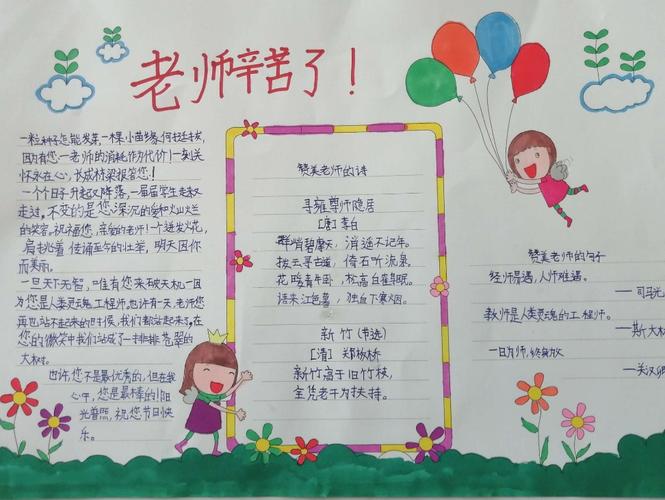 老师辛苦了！
一粒种子怎能发芽，一棵小苗缘何挺拔，
因为有您一老师的消耗作为代价！一刻关
怀永在心，长成材梁报答您！
一个个日子升起又降落，一届届学生走来又
走过，不变的是您深沉的爱和火山火兰
的笑容。祝福您，亲爱的老师！一个迸发火花，
肩挑着传诵至今的壮举，明天因你
而美丽。
一旦天下无智，唯有您来破天机一因
为您是人类灵魂工程师，也许有一天，老师您
再也站不起来的时候，我们都站起来了，在
您的微笑中我们站成了一排排苍翠的
大树。
也许，您不是最优秀的，但在我
心中，您是最棒的！阳
光普照，祝您节日快
乐。
赞美老师的诗
寻雍尊师隐居
[唐]李白
群峭碧摩天，逍遥不记年。
拨云寻古道，倚石听流泉。
花暖青牛卧，松高白雀眠。
语来江色暮，独自下寒烟。
新竹(节选)
[清]郑板桥
新竹高于旧竹枝，
全凭老干为扶持。
赞美老师的句子
经师易遇，人师难遇。
—司马光
教师是人类灵魂的工程师。
—斯大林
一日为师，终身为父
—关汉卿